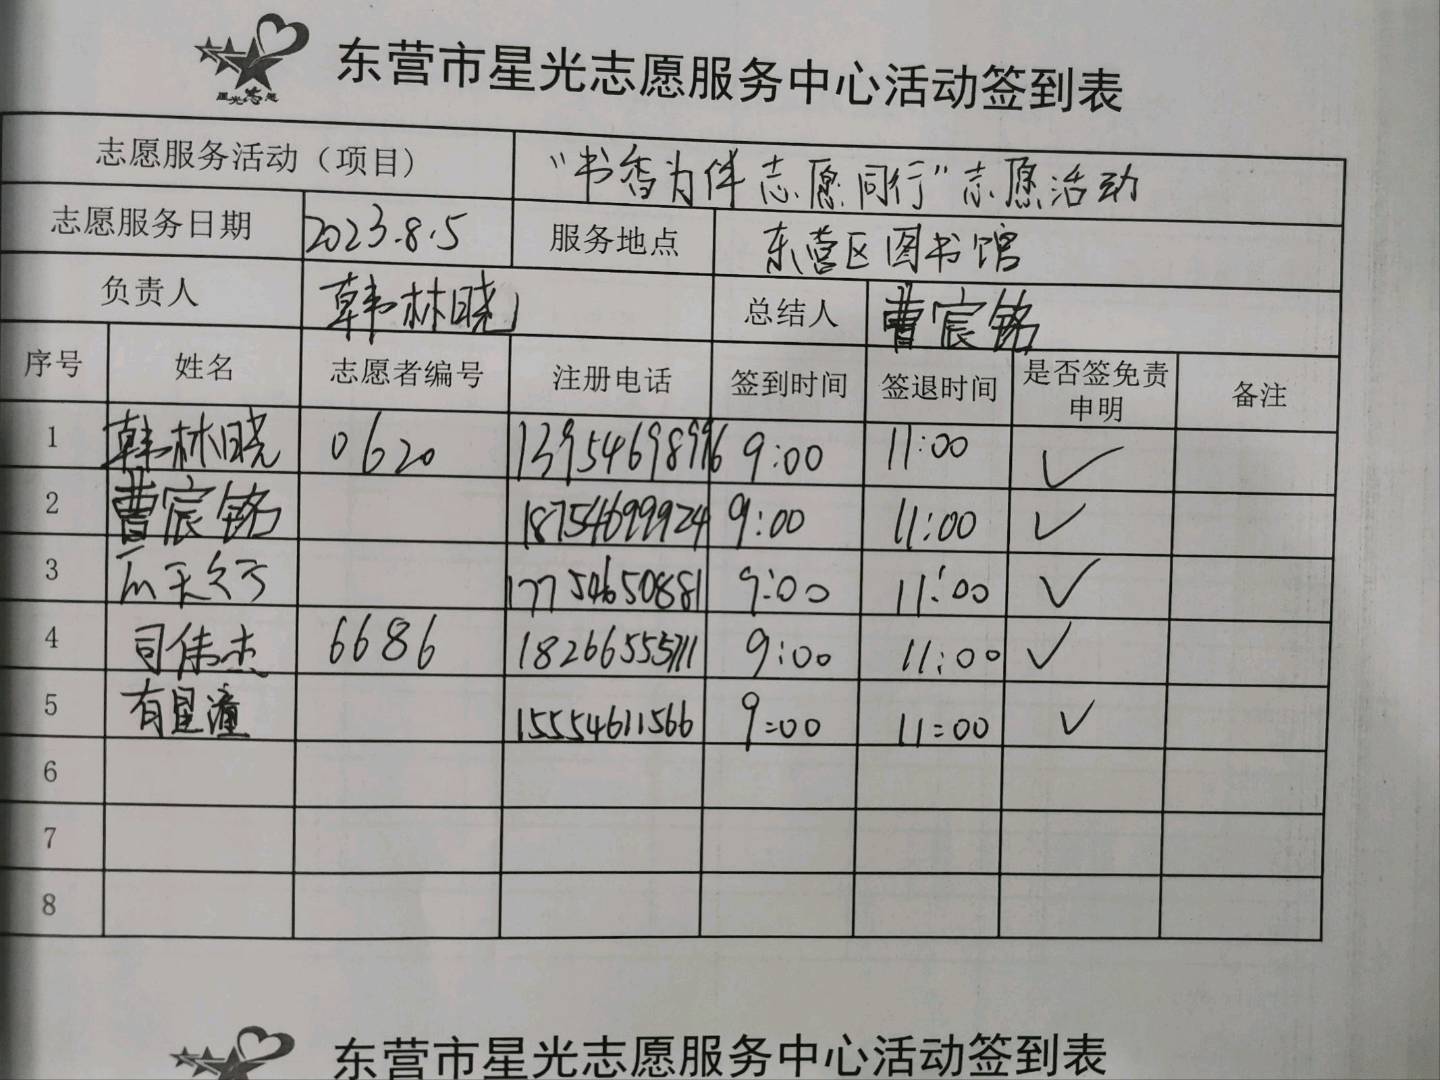 星光志愿
东营市星光志愿服务中心活动签到表
志愿服务活动（项目） “书香为伴 志愿同行”志愿活动
志愿服务日期 2023.8.5 服务地点 东营区图书馆
负责人 韩林晓 总结人 曹宸铭
序号 姓名 志愿者编号 注册电话 签到时间 签退时间 是否签免责申明 备注
1 韩林晓 0620 13954698996 9:00 11:00 ✓
2 曹宸铭 18754699924 9:00 11:00 ✓
3 17754650881 9:00 11:00 ✓
4 司伟杰 6686 18266555711 9:00 11:00 ✓
5 15554611566 9:00 11:00 ✓
6
7
8
东营市星光志愿服务中心活动签到表